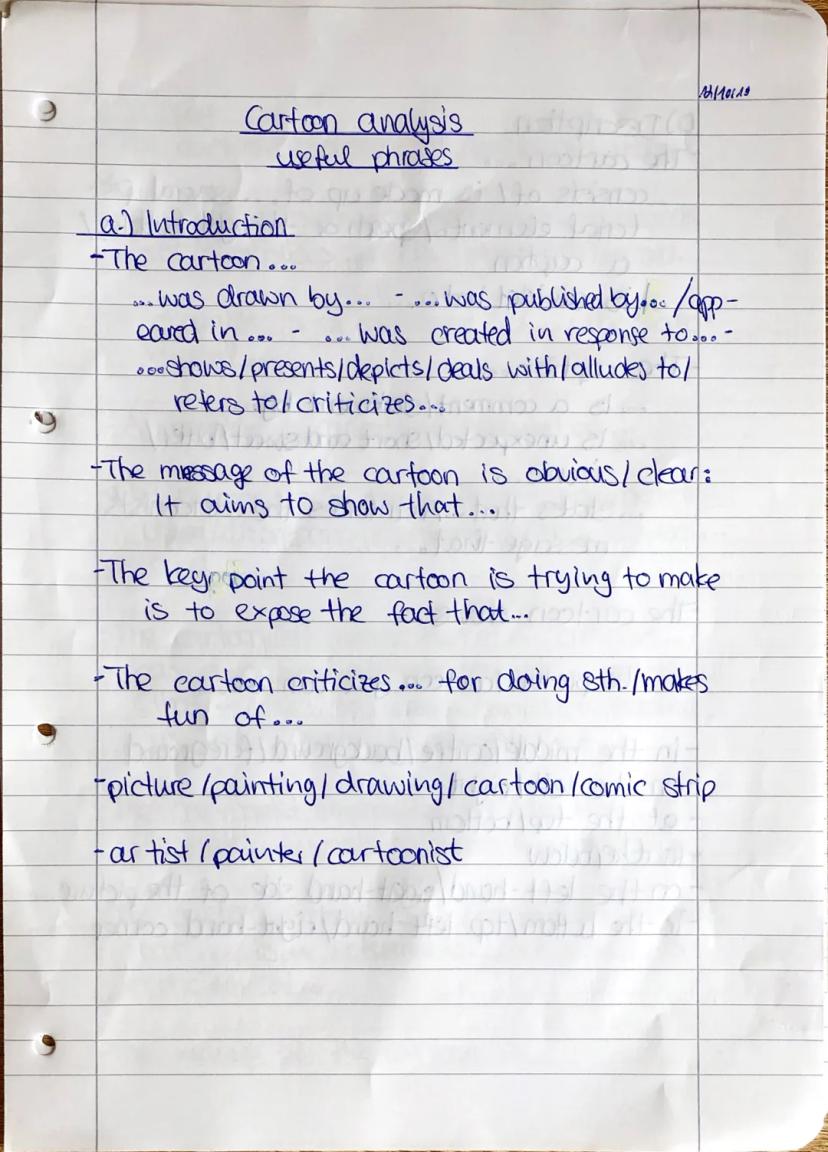 Cartoon analysis
useful phrases
a.) Introduction
-The cartoon...
...was drawn by... - ...was published by... /app-
eared in... - ... was created in response to... -
...shows/presents/depicts/deals with/alludes to/
refers to/criticizes...
-The message of the cartoon is obvious/clear:
It aims to show that...
-The key point the cartoon is trying to make
is to expose the fact that...
-The cartoon criticizes... for doing sth./makes
fun of...
-picture/painting/drawing/cartoon/comic strip
-artist/painter/cartoonist